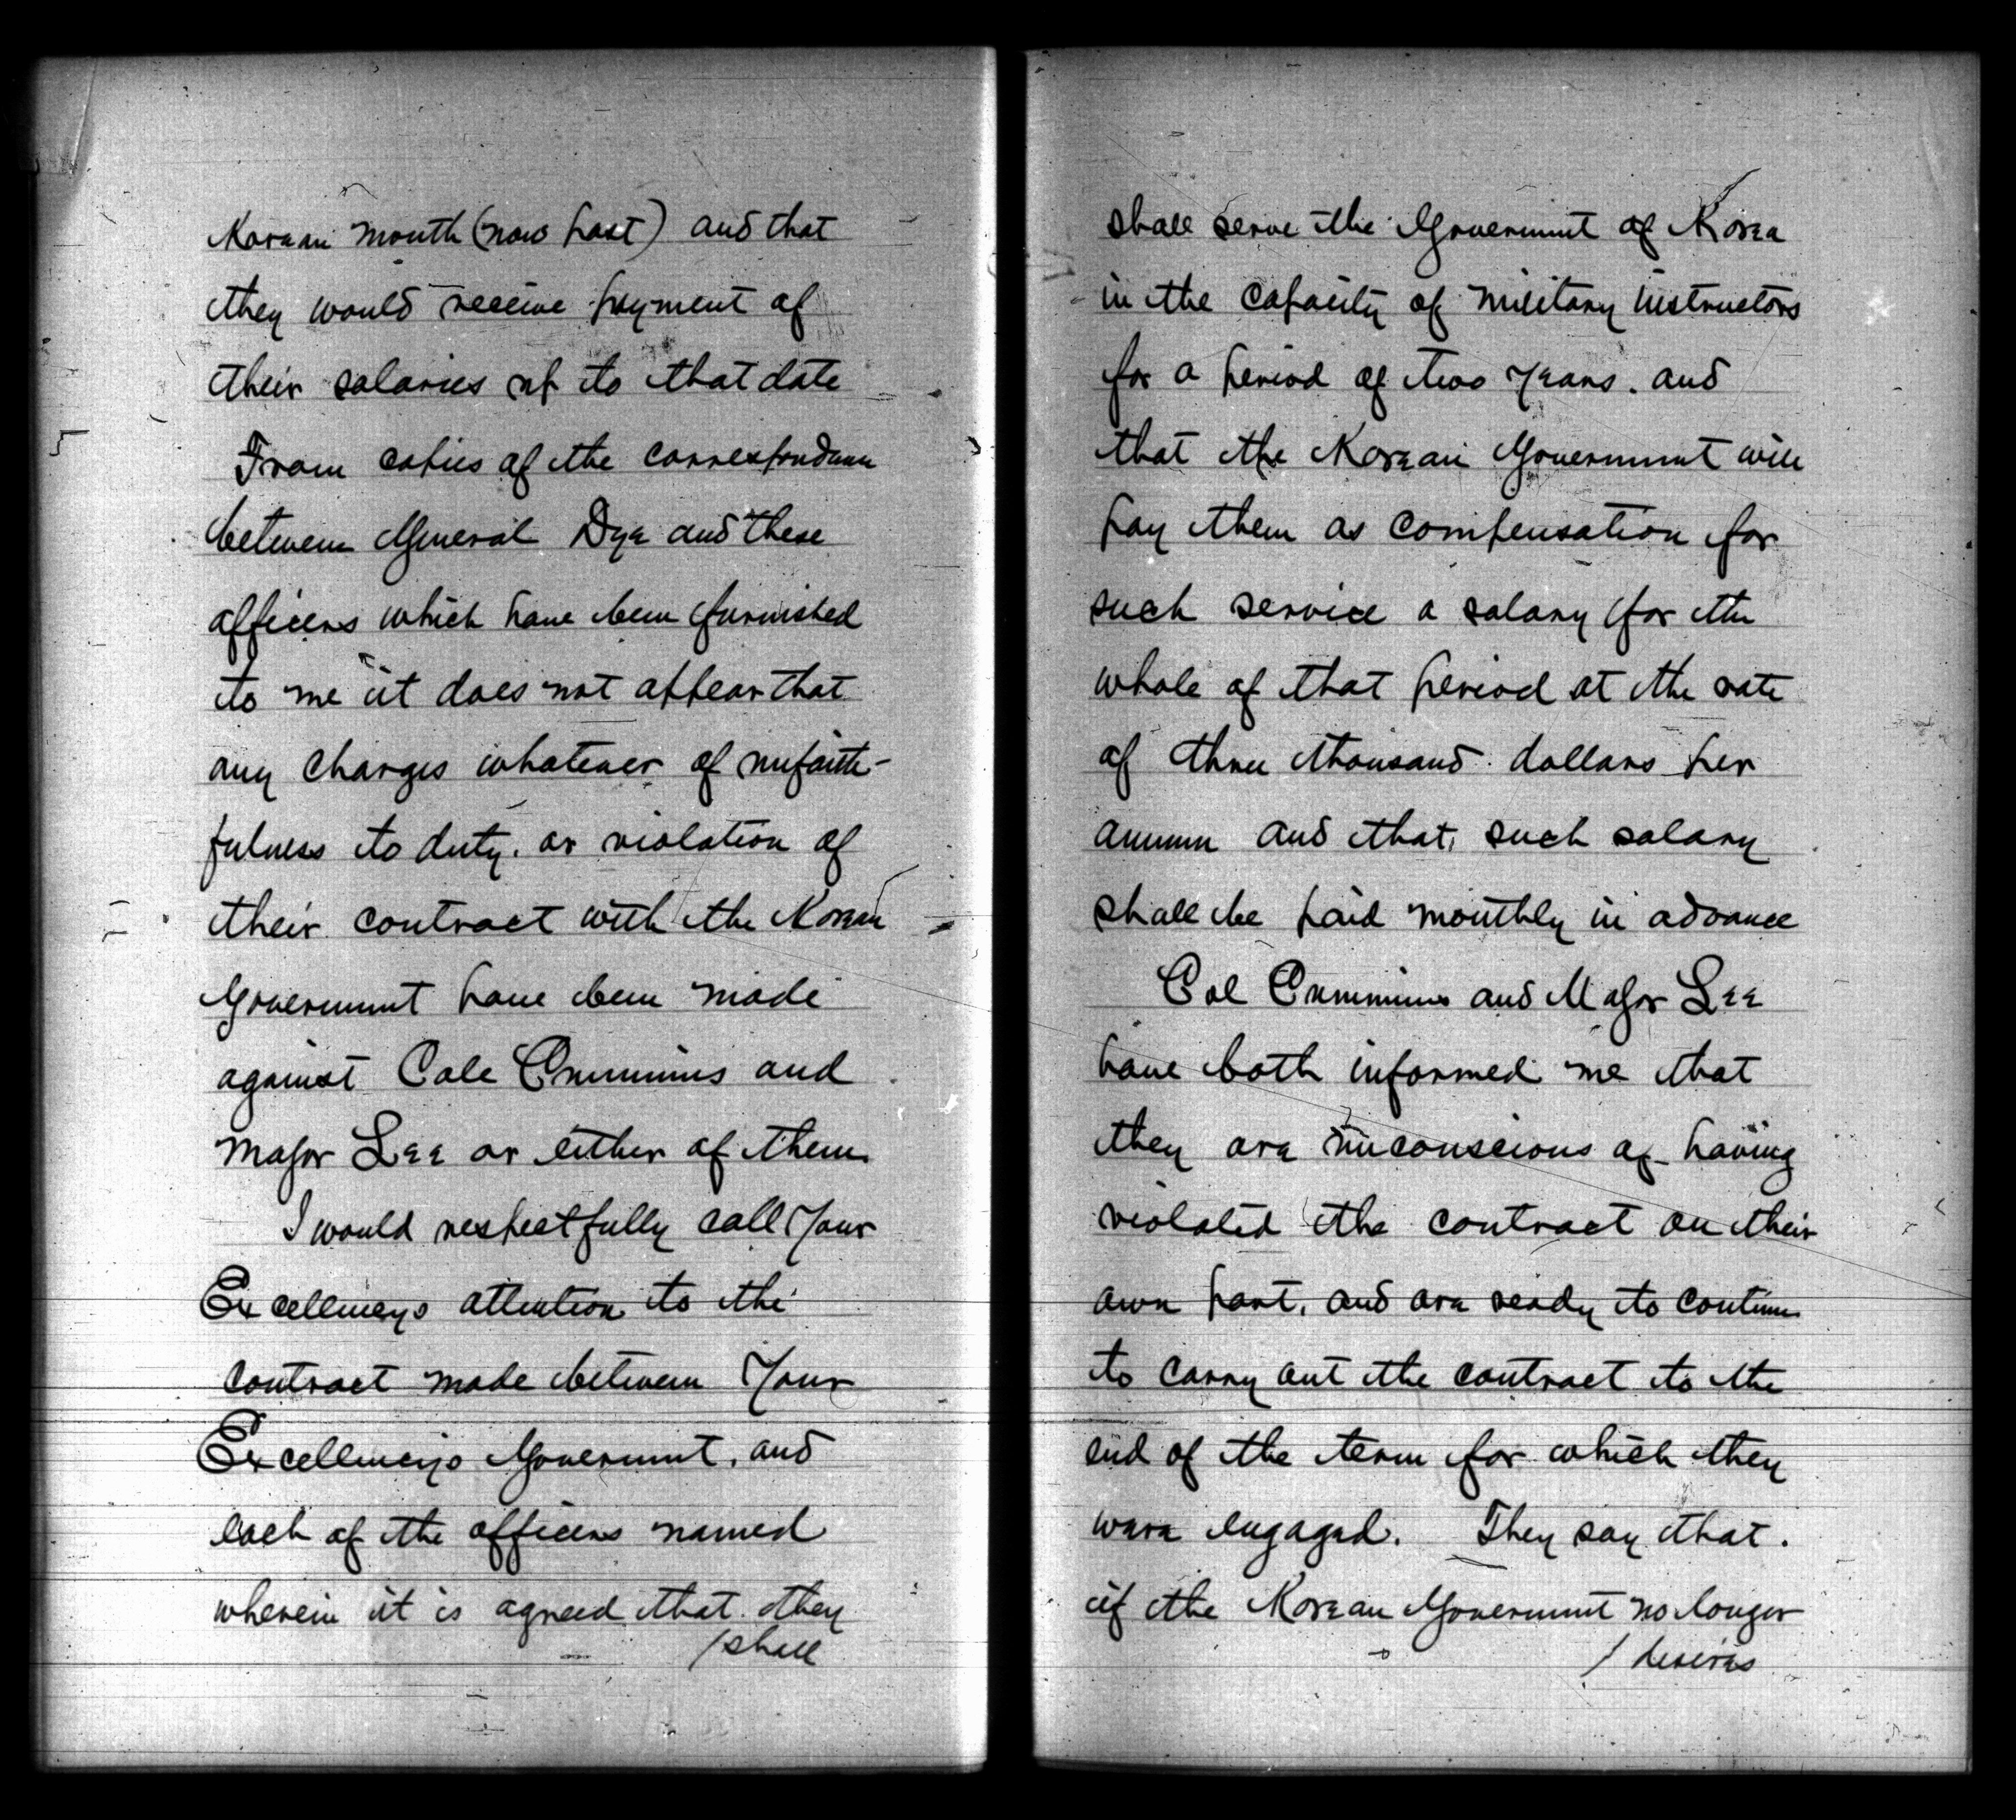 Korean month (now past) and that
they would receive payment of
their salaries up to that date
From copies of the correspondence
between General Dye and these
officers which have been furnished
to me it does not appear that
any charges whatever of unfaith-
fulness to duty. or violation of
their contract with the Korean
Government have been made
against Cole Cummins and
Major Lee or either of them.
I would respectfully call Your
Excellencys attention to the
contract made between Your
Excellencys Government, and
each of the officers named
wherein it is agreed that they
/shall
shall serve the Government of Korea
in the capacity of military instructors
for a period of two years. and
that the Korean Government will
pay them as compensation for
such service a salary for the
whole of that period at the rate
of three thousand dollars per
annum and that, such salary
shall be paid monthly in advance
Col Cummins and Major Lee
have both informed me that
they are unconscious of having
violated the contract on their
own part, and are ready to continue
to carry out the contract to the
end of the term for which they
were engaged. They say that.
if the Korean Government no longer
/ desires